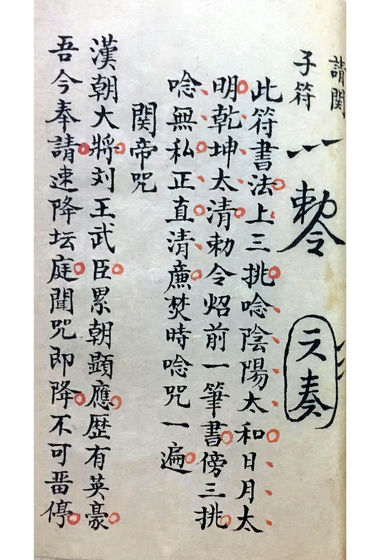 請関
子符
勅令
奏
此符書法上三挑唸陰陽太和日月太
明乾坤太清勅令炤前一筆書傍三挑
唸無私正直清廉焚時唸咒一遍
関帝咒
漢朝大將刘王武臣累朝顯應歴有英豪
吾今奉請速降坛庭聞咒即降不可畱停